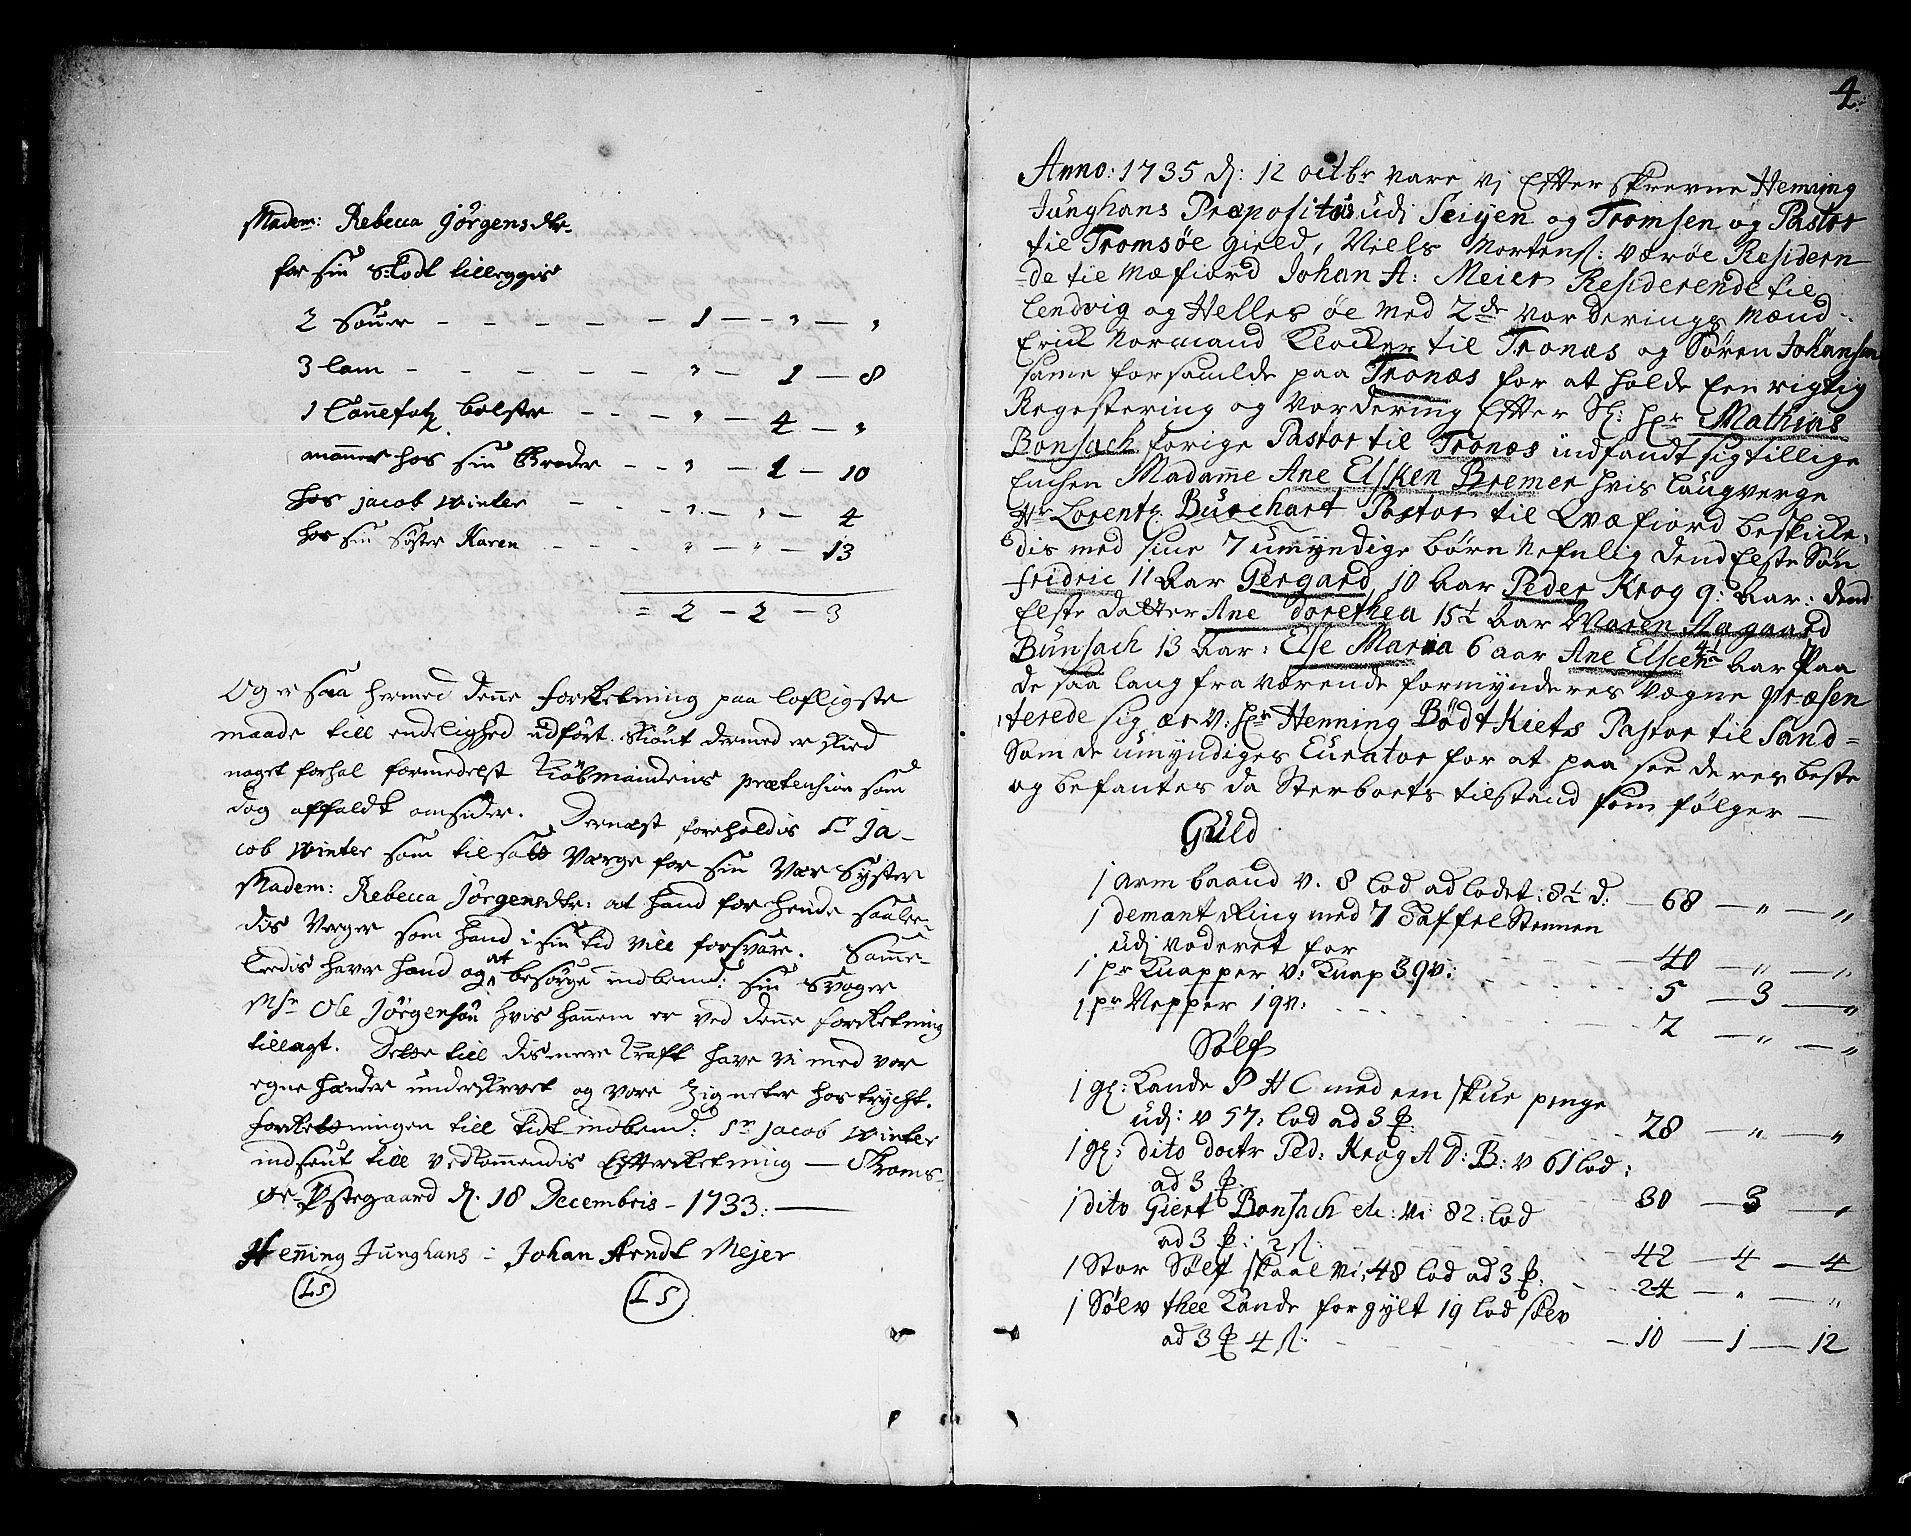 Madem: Rebecca Jörgensdtr
for sin S: lodt tilleggis
2 Souer - - - - - 1 — " — "
3 lam - - - - - " — 1 — 8
1 bolster - - - " — 4 — "
hos sin Broder - - " — 1 — 10
hos jacob winter - - - " — " — 4
hos sin Syster Karen - - - " — " — 13
= 2 — 2 — 3
Og er saa hermed denne forRetning paa lofligste
maade till endelighed udfört. Skiönt dermed er skied
noget forhal formedelst Kiöbmandens prætension som
dog affaldt omsider. Dernæst foreholdis Sr Ja-
cob winter som tilsatt Værge for sin Vær Syster
Madem: Rebecca Jörgensdtr: at hand for hende saale-
dis Verger som hand i sin tid vill forsvare. Samme-
ledis haver hand og at besörge indbemt: sin Svoger
Msr Ole Jörgensön hvis hannem er ved denne forRetning
tillagt. Dette till dis mere Kraft have vi med vor
egne hænder underskrevet og vore Zigneter hostrycht.
forRetningen till tidt indbemt: Sr jacob winter
indsent till vedkommendis Efterretning — Troms-
öe Præstegaard d. 18 Decembris - 1733. —
Henning Junghans - Johan Arndt Mejer
LS LS
4.
Anno: 1735 d: 12 octbr vare vj Efter skrevne Henning
Junghans Præpositus udj Seigen og Tromsen og Pastor
til Tromsöe gield, Niels Mortens: Væröe Residern
de til Mæfiord Johan A: Meier Residerende til
Lendvig og Helles öe med 2de vorderings mænd
Erick Normand Klocker til Tronæs og Sören Johansen
same forsamlde paa Tronæs for at holde Een rigtig
Regestering og Vordering Efter Sl: hr Mathias
Bonsach forige Pastor til Tronæs indfandt sig tillige
Enchen Madame Ane Elsken Bremer hvis laugverge
Hr Lorentz Burchart Pastor til Qvæfiord beskicke-
dis med sine 7 umyndige börn Nefnlig dend Elste Sön
fridric 11 Aar Gergard 10 Aar Peder Krog 9: Aar: dend
Elste datter Ane dorethea 15½ Aar Maren Aagaard
Bunsach 13 Aar: Else Maria 6 aar Ane Elscen 4½ Aar Paa
de saa lang fra værende formynderes vægne præsen
terede sig ær v: hr Henning BödtKiers Pastor til Sand-
Som de umyndiges Curator for at paa see deres beste
og befantes da Sterboets tilstand som fölger —
Guld
1 Arm baand v. 8 lod ad lodet: 8½ d: — 68 — " — "
1 demant Ring med 7 Taffel Stennen
udj voderet for - - - 40 — " — "
1 pr Knapper v: Knap 3 qv: - - - 5 — 3 — "
1 pr Nepper 1 qv: - - - 2 — " — "
Sölf
1 gl: Kande P H C med een skue penge
udj: v 57: lod ad 3 ß - - - 28 — " — "
1 gl: dito doctr Ped: Krog A D: B: v 61 lod:
ad 3 ß - - - 30 — 3 — "
1 dito Giert Bonsach etc: vi 82: lod
ad 3 ß: 2 sl: - - - 42 — 4 — 4
1 Stor Sölf skaal vi: 48 lod ad 3 ß: - - 24 — " — "
1 Sölv thee Kande forgylt 19 lod sölv
ad 3 ß 4 sl: - - - 10 — 1 — 12